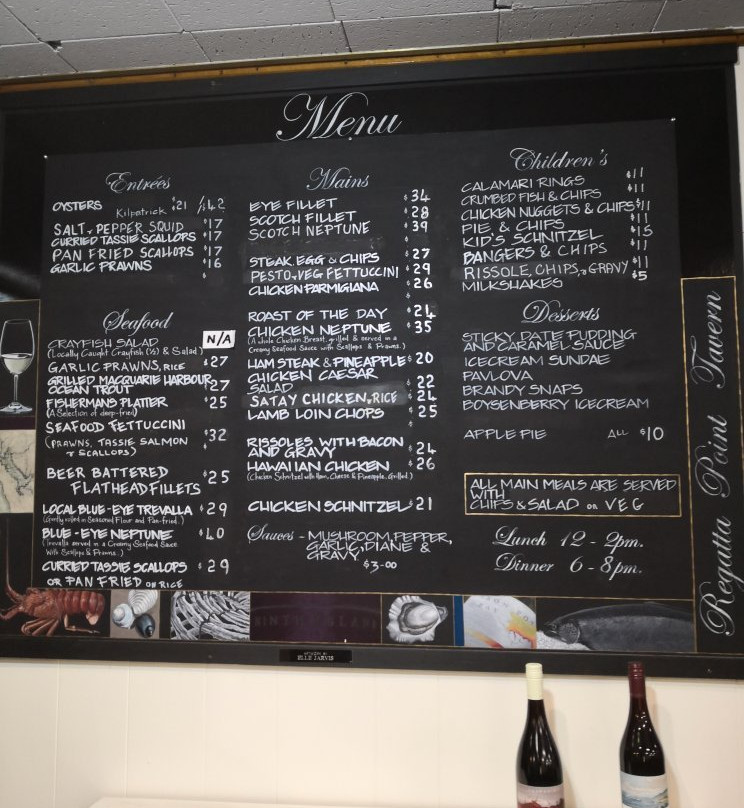 Menu
Entrées
OYSTERS $21 ½ 42
Kilpatrick
SALT & PEPPER SQUID $17
CURRIED TASSIE SCALLOPS $17
PAN FRIED SCALLOPS $17
GARLIC PRAWNS $16
Seafood
CRAYFISH SALAD N/A
(Locally Caught Crayfish (½) & Salad)
GARLIC PRAWNS, RICE $27
GRILLED MACQUARIE HARBOUR
OCEAN TROUT $27
FISHERMANS PLATTER $25
(A Selection of deep-fried)
SEAFOOD FETTUCCINI
(PRAWNS, TASSIE SALMON $32
& SCALLOPS)
BEER BATTERED
FLATHEAD FILLETS $25
LOCAL BLUE-EYE TREVALLA $29
(Gently rolled in Seasoned Flour and Pan-fried.)
BLUE-EYE NEPTUNE $40
(Trevalla served in a Creamy Seafood Sauce
With Scallops & Prawns.)
CURRIED TASSIE SCALLOPS $29
OR PAN FRIED ON RICE
Mains
EYE FILLET $34
SCOTCH FILLET $28
SCOTCH NEPTUNE $39
STEAK, EGG & CHIPS $27
PESTO & VEG FETTUCCINI $29
CHICKEN PARMIGIANA $26
ROAST OF THE DAY $24
CHICKEN NEPTUNE $35
(A whole Chicken Breast, grilled & served in a
Creamy Seafood Sauce with Scallops & Prawns.)
HAM STEAK & PINEAPPLE $20
CHICKEN CAESAR
SALAD $22
SATAY CHICKEN, RICE $24
LAMB LOIN CHOPS $25
RISSOLES WITH BACON
AND GRAVY $24
HAWAIIAN CHICKEN $26
(Chicken Schnitzel with Ham, Cheese & Pineapple, Grilled.)
CHICKEN SCHNITZEL $21
Sauces - MUSHROOM, PEPPER,
GARLIC, DIANE &
GRAVY
$3-00
Children's
CALAMARI RINGS $11
CRUMBED FISH & CHIPS $11
CHICKEN NUGGETS & CHIPS $11
PIE & CHIPS $11
KID'S SCHNITZEL $15
BANGERS & CHIPS $11
RISSOLE, CHIPS, & GRAVY $11
MILKSHAKES $5
Desserts
STICKY DATE PUDDING
AND CARAMEL SAUCE
ICECREAM SUNDAE
PAVLOVA
BRANDY SNAPS
BOYSENBERRY ICECREAM
APPLE PIE ALL $10
ALL MAIN MEALS ARE SERVED
WITH
CHIPS & SALAD OR VEG
Lunch 12 - 2pm.
Dinner 6 - 8pm.
Regatta Point Tavern
ARTWORK BY
ELLE JARVIS